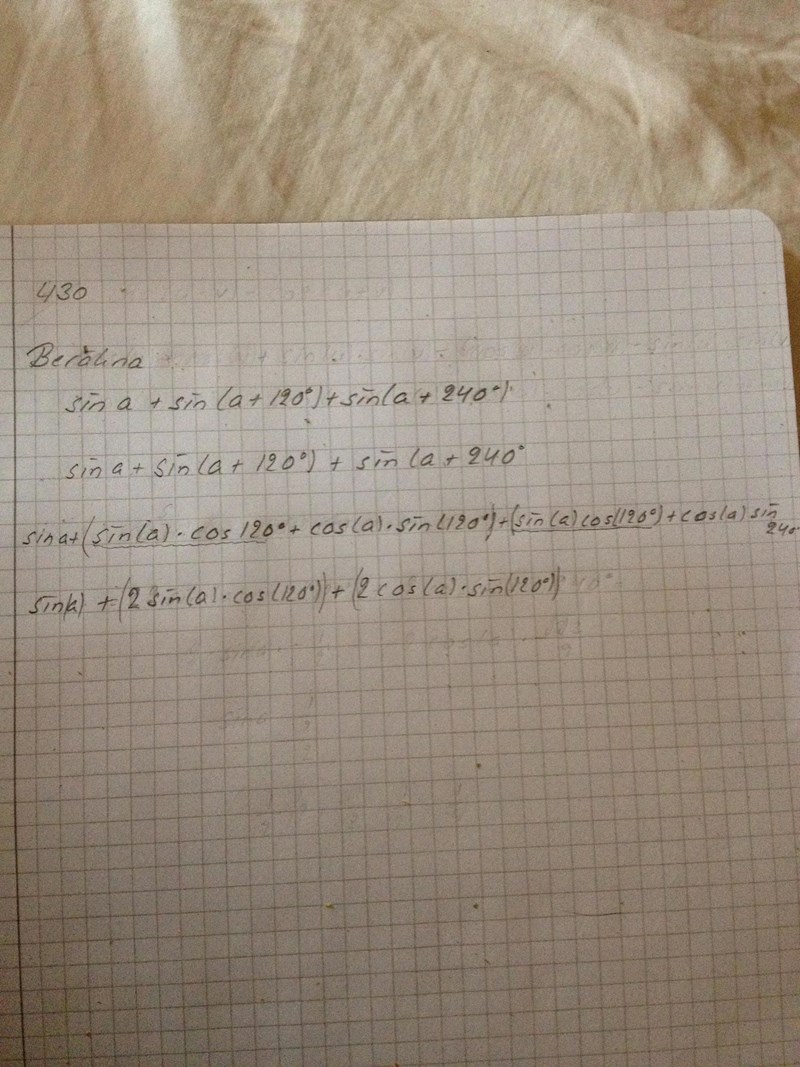 430
Beräkna
sin a + sin (a + 120°) + sin (a + 240°)
sin a + sin (a + 120°) + sin (a + 240°
sin a + (sin(a) · cos 120° + cos(a) · sin(120°) + (sin(a) cos(120°) + cos(a) sin 240°
sin(a) + (2 sin(a) · cos(120°)) + (2 cos(a) · sin(120°))